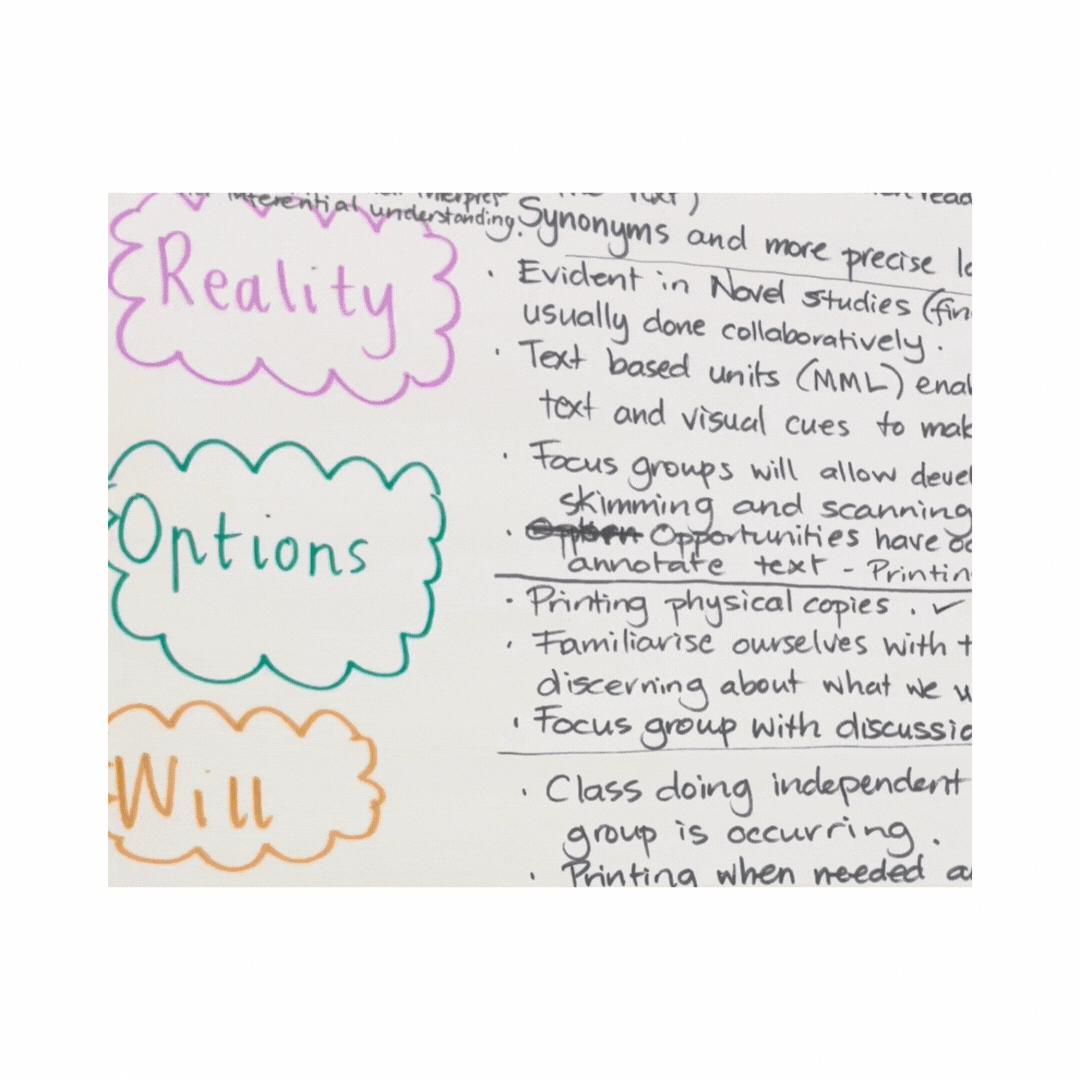 inferential understanding.
Synonyms and more precise
Reality
· Evident in Novel studies
usually done collaboratively.
· Text based units (MML)
text and visual cues to
· Focus groups will allow
skimming and scanning
· Opportunities have
annotate text -
Options
· Printing physical copies . ✓
· Familiarise ourselves with
discerning about what we
· Focus group with
Will
· Class doing independent
group is occurring.
· Printing when needed